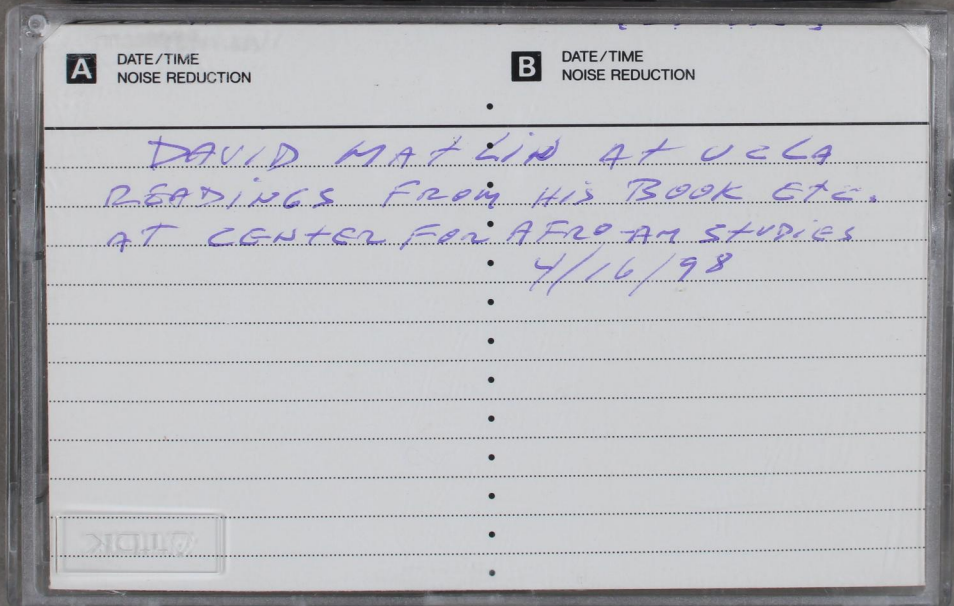 A DATE/TIME NOISE REDUCTION
B DATE/TIME NOISE REDUCTION
DAVID MATLIN At UCLA
READINGS FROM HIS BOOK EtC.
AT CENTER FOR AFRO-AM STUDIES
4/16/98